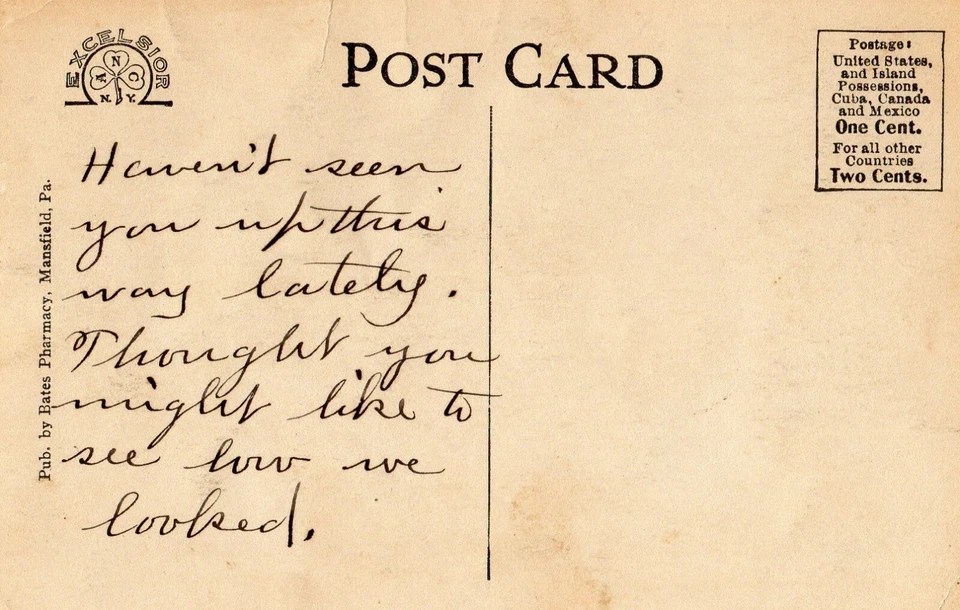 EXCELSIOR
A N C
N.Y.
POST CARD
Postage:
United States,
and Island
Possessions,
Cuba, Canada
and Mexico
One Cent.
For all other
Countries
Two Cents.
Pub. by Bates Pharmacy, Mansfield, Pa.
Haven't seen
you up this
way lately.
Thought you
might like to
see how we
looked.